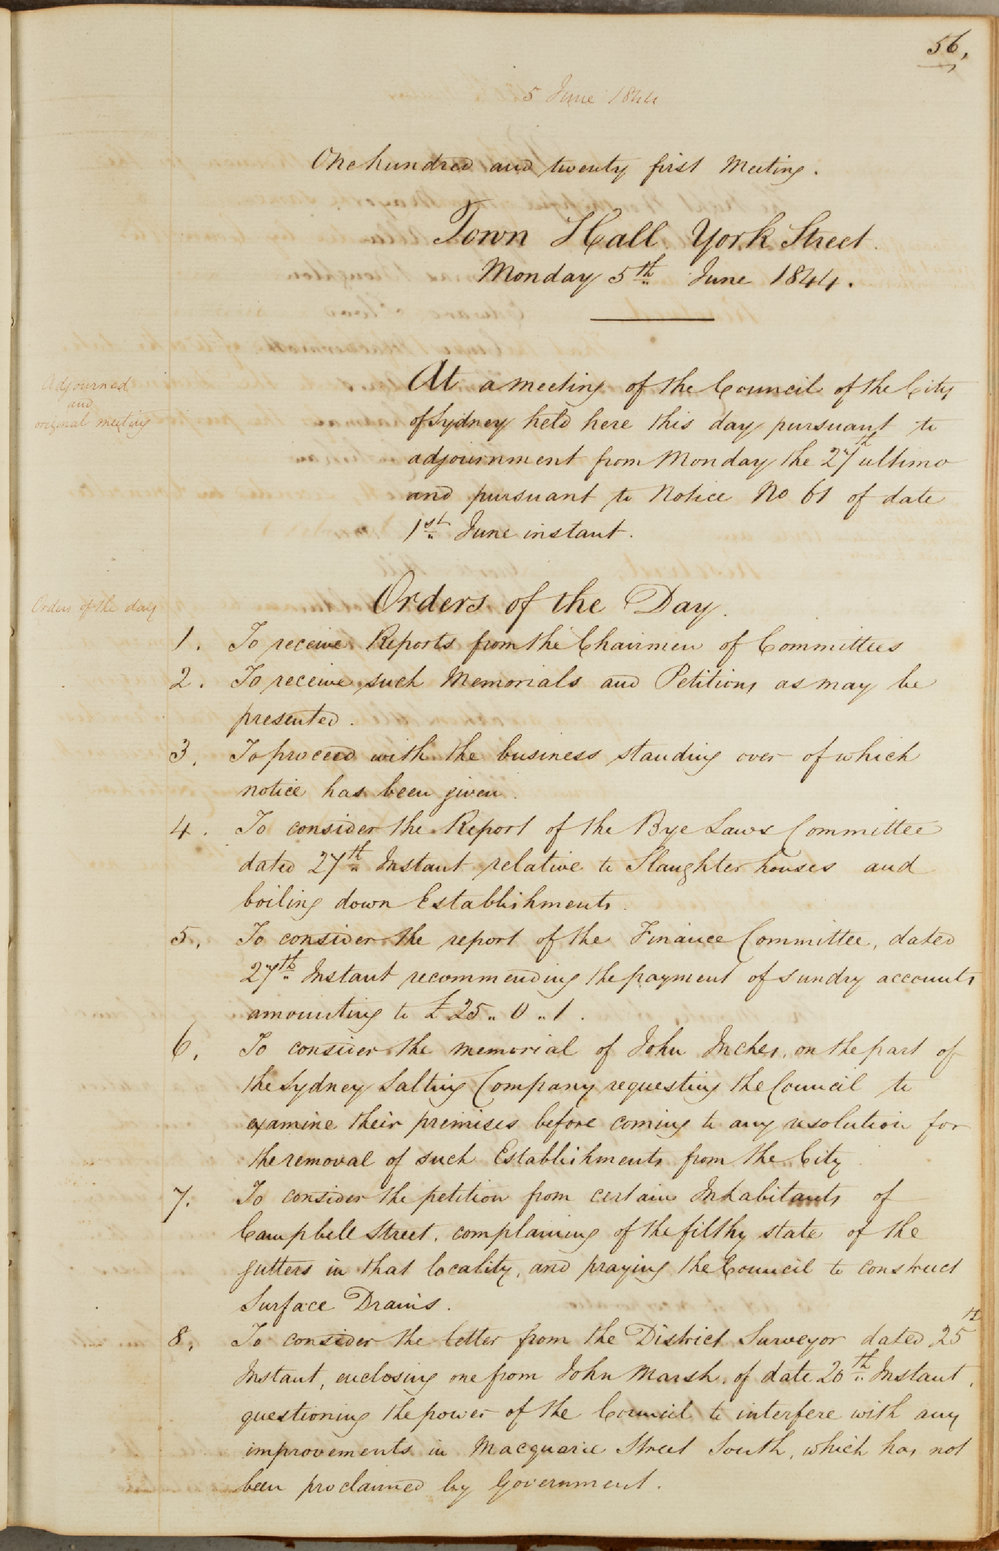 56,
5 June 1844
One hundred and twenty first Meeting.
Town Hall York Street.
Monday 5th June 1844.
Adjourned
and
original meeting
At a meeting of the Council of the City
of Sydney held here this day pursuant to
adjournment from Monday the 27th ultimo
and pursuant to Notice No 61 of date
1st June instant.
Orders of the day
Orders of the Day.
1. To receive Reports from the Chairmen of Committees
2. To receive such Memorials and Petitions as may be
presented.
3. To proceed with the business standing over of which
notice has been given.
4. To consider the Report of the Bye Laws Committee
dated 27th Instant relative to Slaughter houses and
boiling down Establishments.
5. To consider the report of the Finance Committee, dated
27th Instant recommending the payment of sundry accounts
amounting to £25 " 0 " 1.
6. To consider the memorial of John Inches, on the part of
the Sydney Salting Company requesting the Council to
examine their premises before coming to any resolution for
the removal of such Establishments from the City
7. To consider the petition from certain Inhabitants of
Campbell Street, complaining of the filthy state of the
gutters in that locality, and praying the Council to construct
Surface Drains.
8. To consider the letter from the District Surveyor dated 25th
Instant, enclosing one from John Marsh, of date 20th Instant,
questioning the power of the Council to interfere with any
improvements in Macquarie Street South, which has not
been proclaimed by Government.